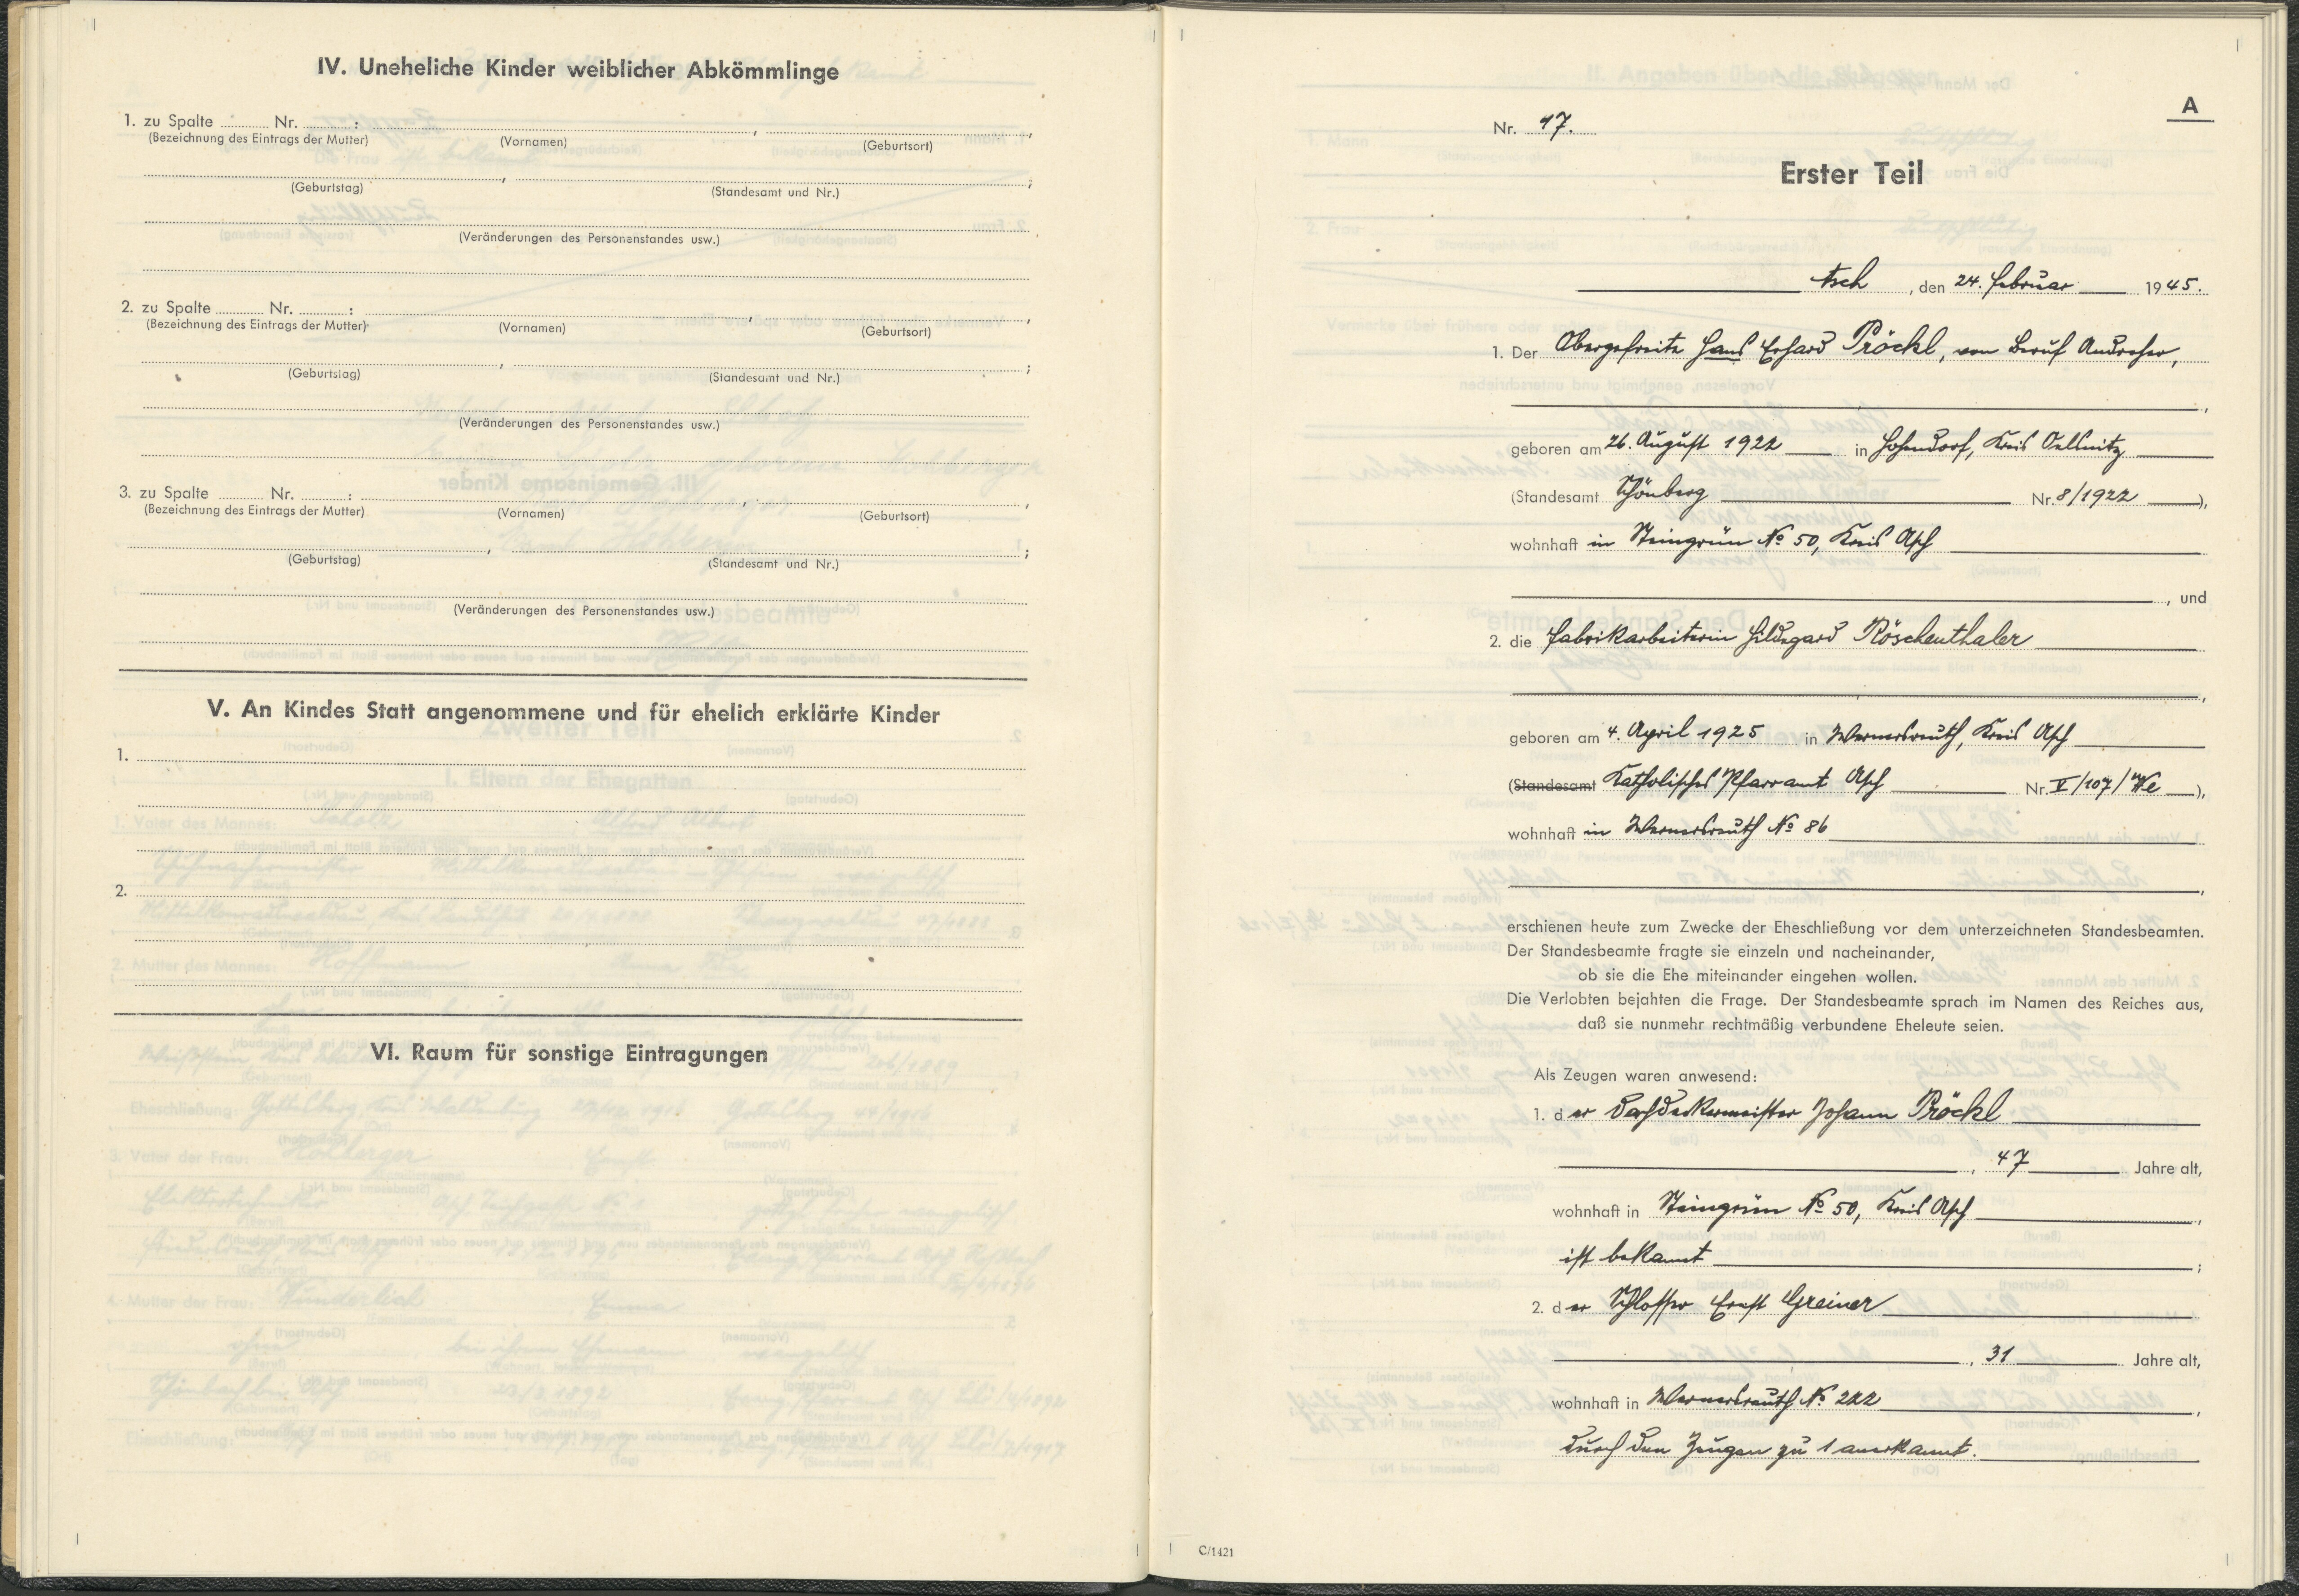 IV. Uneheliche Kinder weiblicher Abkömmlinge
1. zu Spalte Nr. : , ,
(Bezeichnung des Eintrags der Mutter) (Vornamen) (Geburtsort)
, ;
(Geburtstag) (Standesamt und Nr.)
(Veränderungen des Personenstandes usw.)
2. zu Spalte Nr. : , ,
(Bezeichnung des Eintrags der Mutter) (Vornamen) (Geburtsort)
, ;
(Geburtstag) (Standesamt und Nr.)
(Veränderungen des Personenstandes usw.)
3. zu Spalte Nr. : , ,
(Bezeichnung des Eintrags der Mutter) (Vornamen) (Geburtsort)
, ;
(Geburtstag) (Standesamt und Nr.)
(Veränderungen des Personenstandes usw.)
V. An Kindes Statt angenommene und für ehelich erklärte Kinder
1.
2.
VI. Raum für sonstige Eintragungen
A
Nr. 17.
Erster Teil
Asch, den 24. Februar 1945.
1. Der Obergefreite Hans Erhard Pröckl, von Beruf
,
geboren am 26. August 1922 in Hohendorf, Kreis Oelsnitz
(Standesamt Schönberg Nr. 8/1922),
wohnhaft in Steingrün No 50, Kreis Asch
, und
2. die Fabrikarbeiterin Hildegard Röschenthaler
,
geboren am 4. April 1925 in Wernersreuth, Kreis Asch
(Standesamt Katholisches Pfarramt Asch Nr. V/107/We),
wohnhaft in Wernersreuth No 86
,
erschienen heute zum Zwecke der Eheschließung vor dem unterzeichneten Standesbeamten.
Der Standesbeamte fragte sie einzeln und nacheinander,
ob sie die Ehe miteinander eingehen wollen.
Die Verlobten bejahten die Frage. Der Standesbeamte sprach im Namen des Reiches aus,
daß sie nunmehr rechtmäßig verbundene Eheleute seien.
Als Zeugen waren anwesend:
1. der Dachdeckermeister Johann Pröckl
, 47 Jahre alt,
wohnhaft in Steingrün No 50, Kreis Asch,
ist bekannt;
2. der Schlosser Ernst Greiner
, 31 Jahre alt,
wohnhaft in Wernersreuth No 222,
durch den Zeugen zu 1 anerkannt.
C/1421